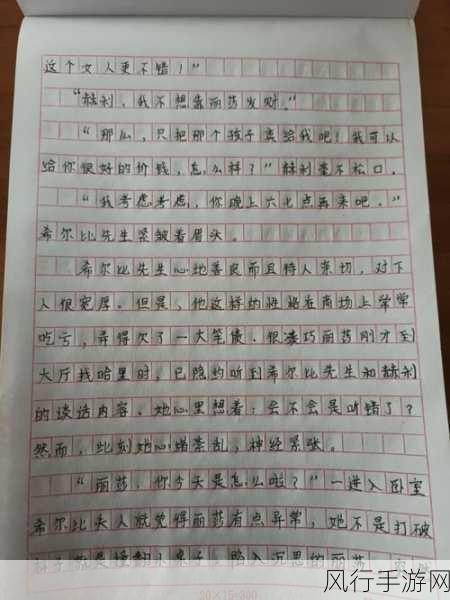 这个女人更不错！”
“赫利，我不想靠丽莎发财。”
“那么，只把那个孩子卖给我吧！我可以
给你很好的价钱，怎么样？”赫利毫不松口。
“我考虑考虑，你晚上六七点再来吧。”
希尔比先生紧皱着眉头。
希尔比先生心地善良而且待人亲切，对下
人很宽厚。但是，他这样的性格在商场上常常
吃亏，弄得欠了一大笔债。很凑巧丽莎刚才到
大厅找哈里时，已隐约听到希尔比先生和赫利
的谈话内容。她心里想着：会不会是听错了？
然而，此刻她心绪紊乱，神经紧张。
“丽莎，你今天是怎么啦？”一进入卧室
希尔比夫人就觉得丽莎有点异常，她不是打破
杯子就是撞翻小桌子，陷入沉思的丽莎，
20×15=300
风行手游网